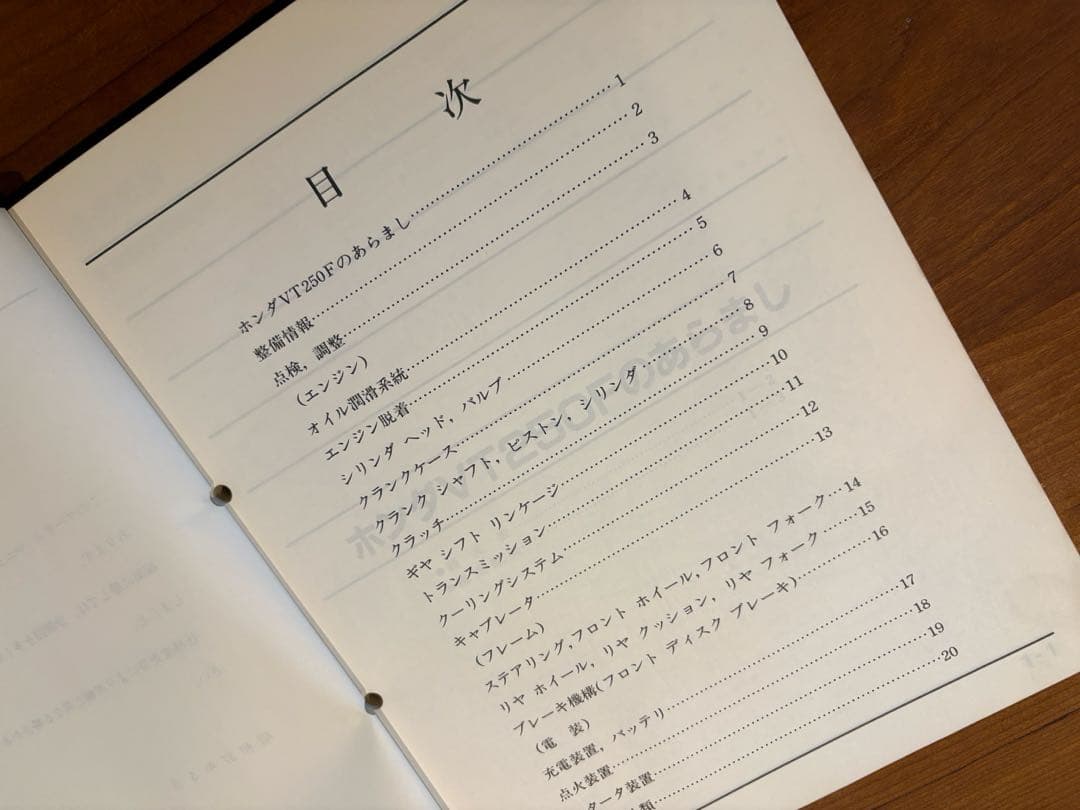 目次
ホンダVT250Fのあらまし……1
整備情報……2
点検，調整……3
(エンジン)
オイル潤滑系統……4
エンジン脱着……5
シリンダ ヘッド，バルブ……6
クランクケース……7
クランク シャフト，ピストン，シリンダ……8
クラッチ……9
ギヤ シフト リンケージ……10
トランスミッション……11
クーリングシステム……12
キャブレータ……13
(フレーム)
ステアリング,フロント ホイール,フロント フォーク……14
リヤ ホイール，リヤ クッション，リヤ フォーク……15
ブレーキ機構(フロント ディスク ブレーキ)……16
(電 装)
充電装置，バッテリ……17
点火装置……18
タータ装置……19
類……20
ホンダVT250Fのあらまし
1-1